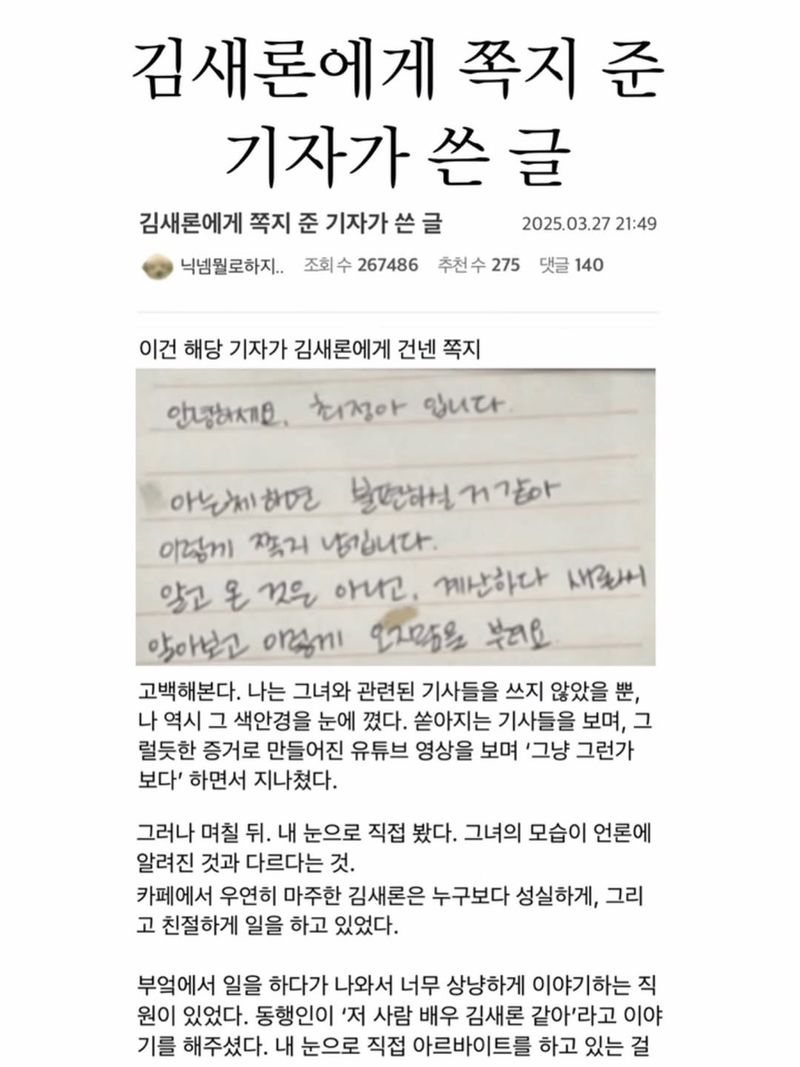 김새론에게 쪽지 준
기자가 쓴 글
김새론에게 쪽지 준 기자가 쓴 글 2025.03.27 21:49
닉넴뭘로하지.. 조회수 267486 추천수 275 댓글 140
이건 해당 기자가 김새론에게 건넨 쪽지
안녕하세요, 최정아 입니다.
아는체하면 불편하실 거 같아
이렇게 쪽지 남깁니다.
알고 온 것은 아니고, 계산하다 새론씨
알아보고 이렇게 오지랖을 부려요.
고백해본다. 나는 그녀와 관련된 기사들을 쓰지 않았을 뿐,
나 역시 그 색안경을 눈에 꼈다. 쏟아지는 기사들을 보며, 그
럴듯한 증거로 만들어진 유튜브 영상을 보며 ‘그냥 그런가
보다’ 하면서 지나쳤다.
그러나 며칠 뒤. 내 눈으로 직접 봤다. 그녀의 모습이 언론에
알려진 것과 다르다는 것.
카페에서 우연히 마주한 김새론은 누구보다 성실하게, 그리
고 친절하게 일을 하고 있었다.
부엌에서 일을 하다가 나와서 너무 상냥하게 이야기하는 직
원이 있었다. 동행인이 ‘저 사람 배우 김새론 같아’라고 이야
기를 해주셨다. 내 눈으로 직접 아르바이트를 하고 있는 걸